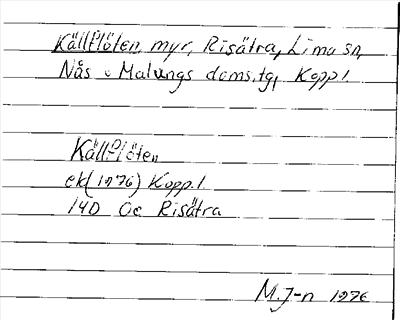 Källflöten, myr, Risätra, Lima sn,
Nås o Malungs doms.tg, Kopp l.
Källflöten
ek (1976) Kopp. l
14D 0c Risätra
M. J-n 1976